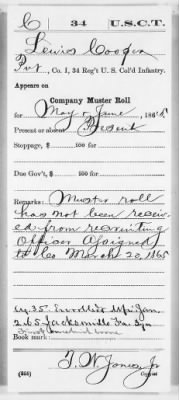 C | 34 | U.S.C.T.
Lewis Cooper
Pvt, Co. I, 34 Reg't U. S. Col'd Infantry.
Appears on
Company Muster Roll
for May & June, 1865.
Present or absent Present
Stoppage, $ 100 for
Due Gov't, $ 100 for
Remarks: Muster roll
has not been receiv-
ed from recruiting
Officer Assigned
to Co March 20, 1865
Enrolled
Jacksonville Fla
Book mark:
(866)
Copyist